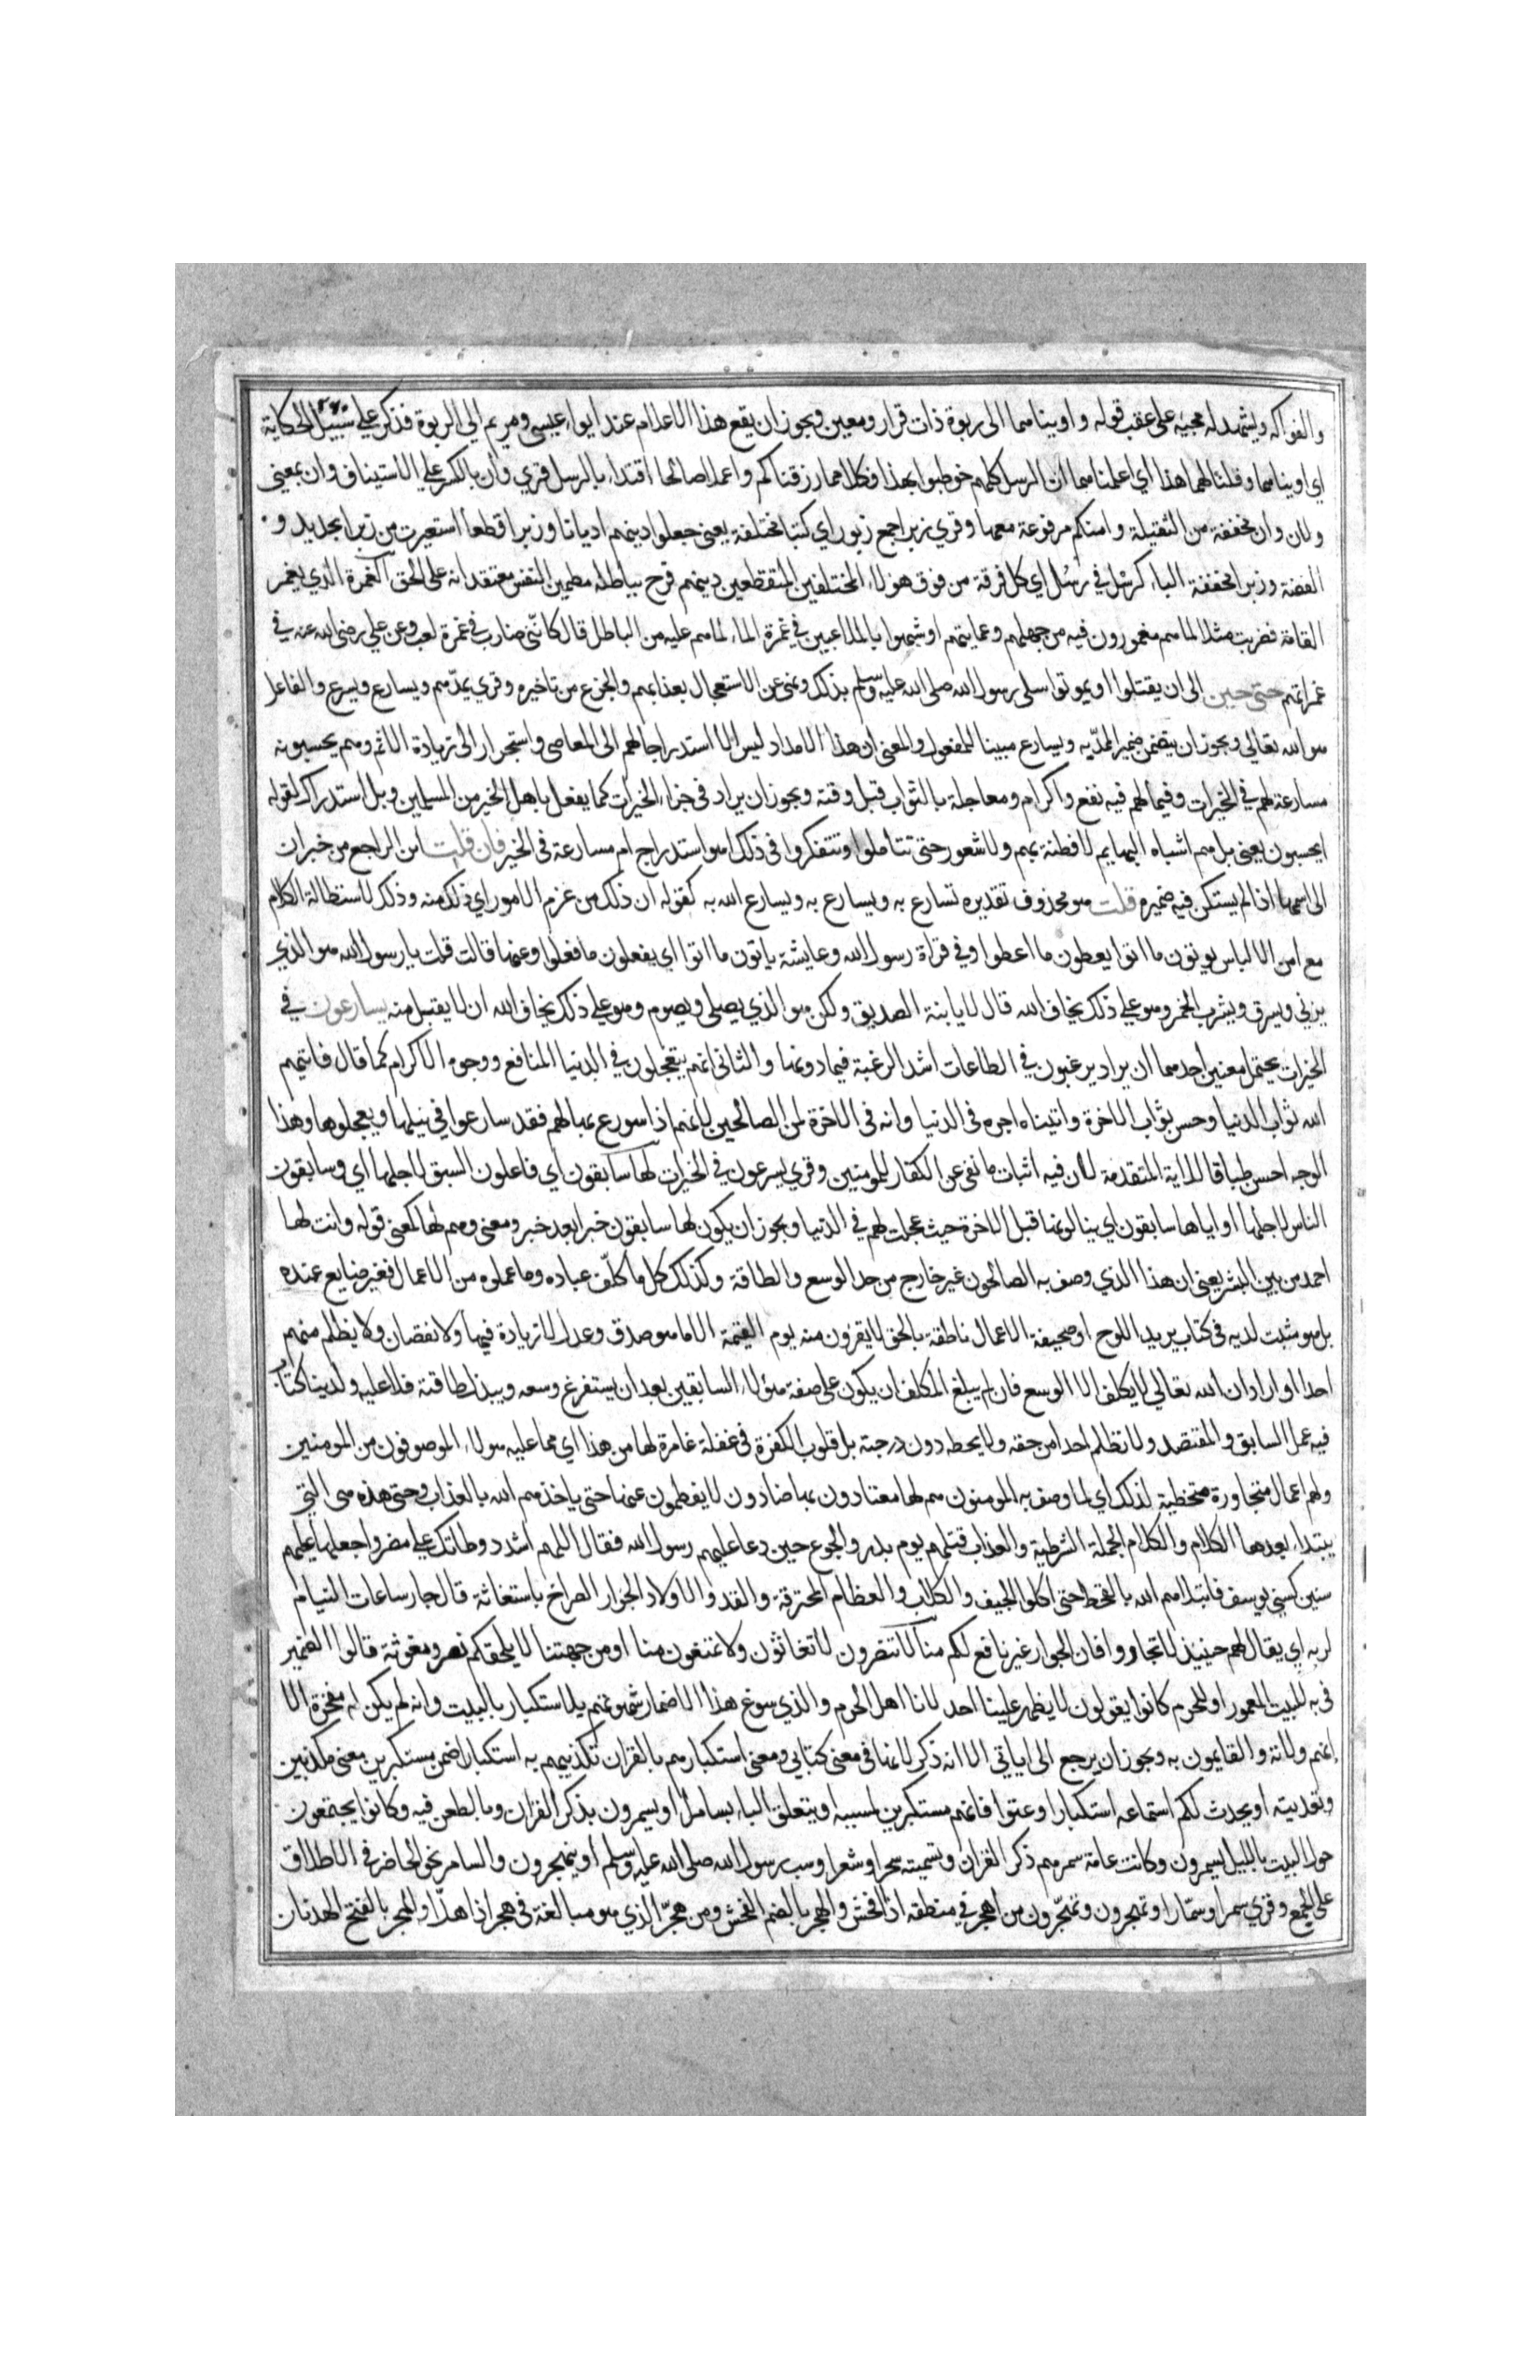 والفواكه ويشهد له مجيئه على عقب قوله واويناهما الى ربوة ذات قرار ومعين ويجوز ان يقع هذا الاعلام عند ايواء عيسى ومريم الى الربوة فذكر على سبيل الحكاية
اي اويناهما وقلنا لهما هذا اي اعلمناهما ان الرسل كلهم خوطبوا بهذا فكلا مما رزقناكم واعملا صالحا اقتداء بالرسل قري وان بالكسر على الاستيناف وان بمعنى
ولان وان مخففة من الثقيلة وامتكم مرفوعة معها وقري زبرا جمع زبور اي كتبا مختلفة يعني جعلوا دينهم اديانا وزبرا قطعا استعيرت من زبر الحديد و
الفضة وزبرا مخففة الباء كرسل في رسل اي كل فرقة من فوق هولاء المختلفين المتقطعين دينهم فرح بباطله مطمين النفس معتقد انه على الحق الغمرة الذي يغمر
القامة فضربت مثلا لما هم مغمورون فيه من جهلهم وعمايتهم او شبهوا باللاعبين في غمرة الماء لما هم عليه من الباطل قال كانني ضارب في غمرة لعب وعن علي رضي الله عنه في
غمراتهم حتى حين الى ان يقتلوا او يموتوا سلى رسول الله صلى الله عليه وسلم بذلك ونهى عن الاستعجال بعذابهم والجزع من تاخيره وقري يمدهم ويسارع ويسرع والفاعل
هو الله تعالى ويجوز ان يتضمن ضمير الممد به ويسارع مبينا للمفعول والمعنى ان هذا الامداد ليس الا استدراجا لهم الى المعاصى واستجرارا الى زيادة الاثم وهم يحسبونه
مسارعة لهم في الخيرات وفيما لهم فيه نفع واكرام ومعاجلة بالثواب قبل وقته ويجوز ان يراد في جزاء الخيرات كما يفعل باهل الخير من المسلمين وبل استدراك لقوله
ايحسبون يعنى بل هم اشباه البهايم لا فطنة بهم ولا شعور حتى يتاملوا ويتفكروا في ذلك اهو استدراج ام مسارعة في الخير فان قلت اين الراجع من خبر ان
الى اسمها اذا لم يستكن فيه ضميره قلت هو محذوف تقديره نسارع به ويسارع به ويسارع الله به كقوله ان ذلك من عزم الامور اي ذلك منه وذلك لاستطالة الكلام
مع امن الالباس يوتون ما اتوا يعطون ما اعطوا وفي قراة رسول الله وعايشة ياتون ما اتوا اي يفعلون ما فعلوا وعنها قالت قلت يا رسول الله هو الذي
يزني ويسرق ويشرب الخمر وهو على ذلك يخاف الله قال لا يا ابنة الصديق ولكن هو الذي يصلى ويصوم وهو على ذلك يخاف الله ان لا يقبل منه يسارعون في
الخيرات يحتمل معنين احدهما ان يراد يرغبون في الطاعات اشد الرغبة فيبادونها والثانى انهم يتعجلون في الدنيا المنافع ووجوه الاكرام كما قال فاتيهم
الله ثواب الدنيا وحسن ثواب الاخرة واتيناه اجره في الدنيا وانه في الاخرة لمن الصالحين لانهم اذا سورع بها لهم فقد سارعوا في نيلها ويعجلوها وهذا
الوجه احسن طباقا للاية المتقدمة لان فيه اثبات ما نفي عن الكفار للمومنين وقري يسرعون في الخيرات لها سابقون اي فاعلون السبق لاجلها اي وسابقون
الناس لاجلها او اياها سابقون اي ينالونها قبل الاخرة حيث عجلت لهم في الدنيا ويجوز ان يكون لها سابقون خبرا بعد خبر ومعنى وهم لها كمعنى قوله وانت لها
احمد من بين البشر يعنى ان هذا الذي وصف به الصالحون غير خارج من حد الوسع والطاقة وكذلك كل ما كلف عباده وما عملوه من الاعمال فغير ضايع عنده
بل هو مثبت لديه في كتاب يريد اللوح او صحيفة الاعمال ناطقة بالحق لا يقرون منه يوم القيمة الا ما هو صدق وعدل لا زيادة فيها ولا نقصان ولا يظلم منهم
احدا او اراد ان الله تعالى لا يكلف الا الوسع فان لم يبلغ المكلف ان يكون على صفة هولاء السابقين بعد ان يستفرغ وسعه ويبذل طاقته فلا عليه ولدينا كتاب
فيه عمل السابق والمقتصد ولا نظلم احدا من حقه ولا يحطه دون درجته بل قلوب الكفرة في غفلة غامرة لها من هذا اي مما عليه هولاء الموصوفون من المومنين
ولهم اعمال متجاورة متخطية لذلك اي لما وصف به المومنون هم لها معتادون بها ضادون لا يفطمون عنها حتى ياخذهم الله بالعذاب وحتى هذه هى التي
يبتداء بعدها الكلام والكلام الجملة الشرطية والعذاب قتلهم يوم بدر والجوع حين دعا عليهم رسول الله فقال اللهم اشدد وطاتك على مضر واجعلها عليهم
سنين كسني يوسف فابتلاهم الله بالقحط حتى اكلوا الجيف والكلاب والعظام المحترقة والقد والاولاد الجوار الصراخ باستغاثة قال جار ساعات النيام
لربه اي يقال لهم حينيذ لا تجاروا فان الجوار غير نافع لكم منا لا تنصرون لا تغاثون ولا تمنعون منا او من جهتنا لا يلحقكم نصر ومغوثة قالوا الضمير
في به للبيت المعمور او للحرم كانوا يقولون لا يظهر علينا احد لانا اهل الحرم والذي سوغ هذا الاضمار شهرتهم بالاستكبار بالبيت وانه لم يكن له مفخرة الا
انهم ولاته والقايمون به ويجوز ان يرجع الى اياتي الا انه ذكر لانها في معنى كتابي ومعنى استكبارهم بالقران تكذيبهم به استكبارا ضمن مستكبرين معنى مكذبين
وتعديته او يحدث لكم استماعه استكبارا وعتوا فانتم مستكبرين لسببه او يتعلق الباء بسامرا او يسمرون بذكر القران وبالطعن فيه وكانوا يجتمعون
حول البيت بالليل يسمرون وكانت عامة سمرهم ذكر القران وتسميته سحرا وشعرا وسب رسول الله صلى الله عليه وسلم او يهجرون والسامر نحو الحاضر في الاطلاق
على الجمع وقري سمرا وسمارا وتهجرون وتهجرون من اهجر في منطقه اذا افحش والهجر بالضم الفحش ومن هجر الذي هو مبالغة في هجر اذا هذا والهجر بالفتح الهذيان